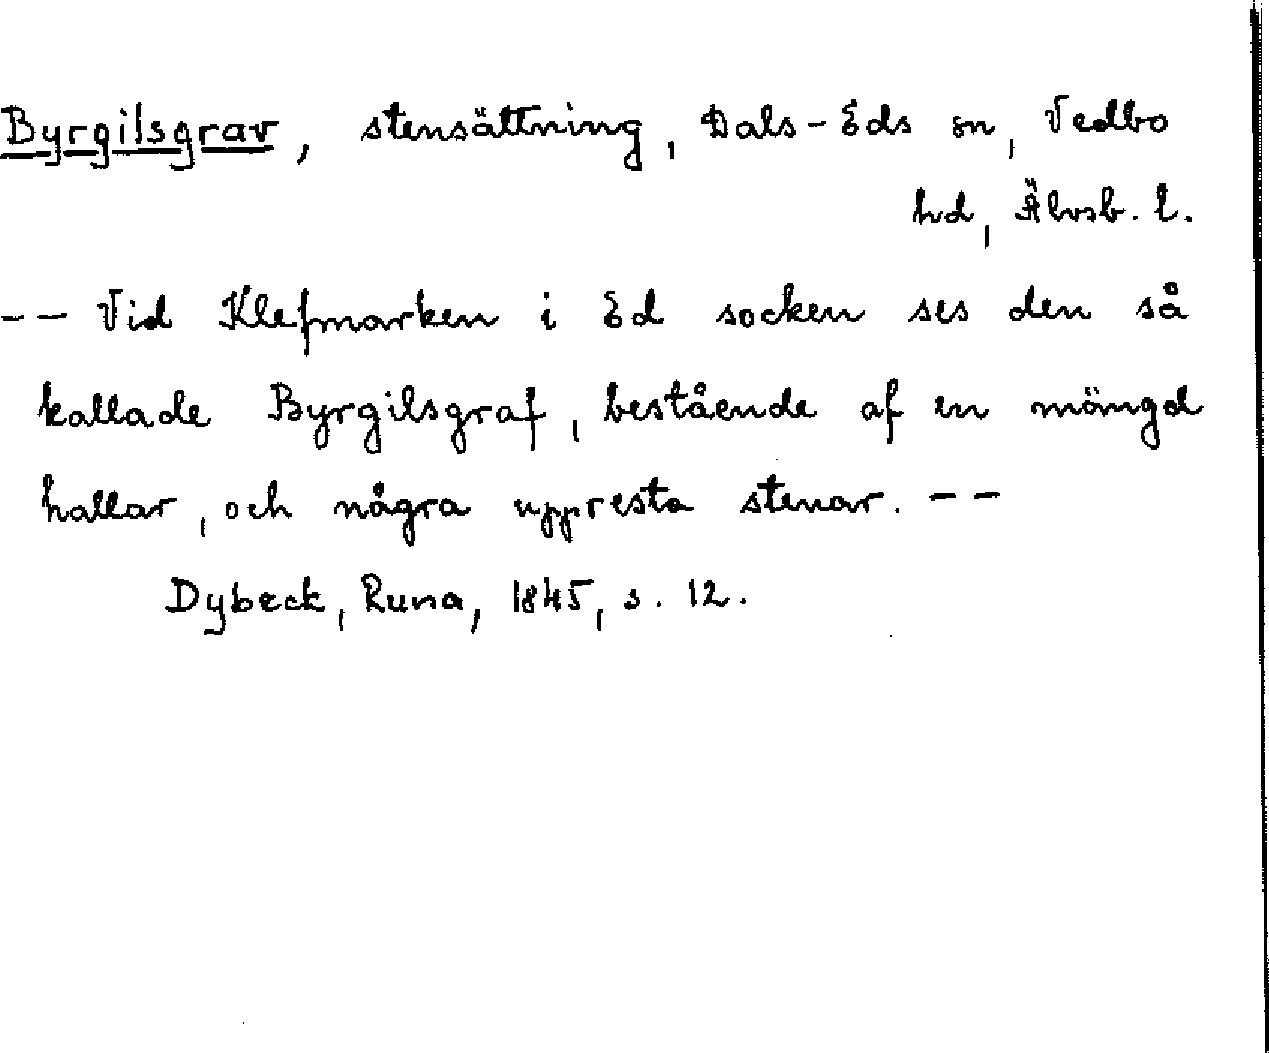 Byrgilsgrav, stensättning, Dals-Eds sn, Vedbo
hd, Älvsb. l.
-- Vid Klefmarken i Ed socken ses den så
kallade Byrgilsgraf, bestående af en mängd
hallar, och några uppresta stenar. --
Dybeck, Runa, 1845, s. 12.